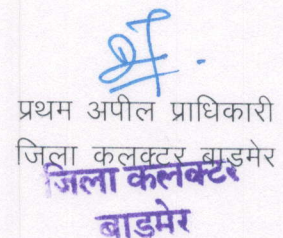 प्रथम अपील प्राधिकारी
जिला कलक्टर बाड़मेर
जिला कलेक्टर
बाड़मेर